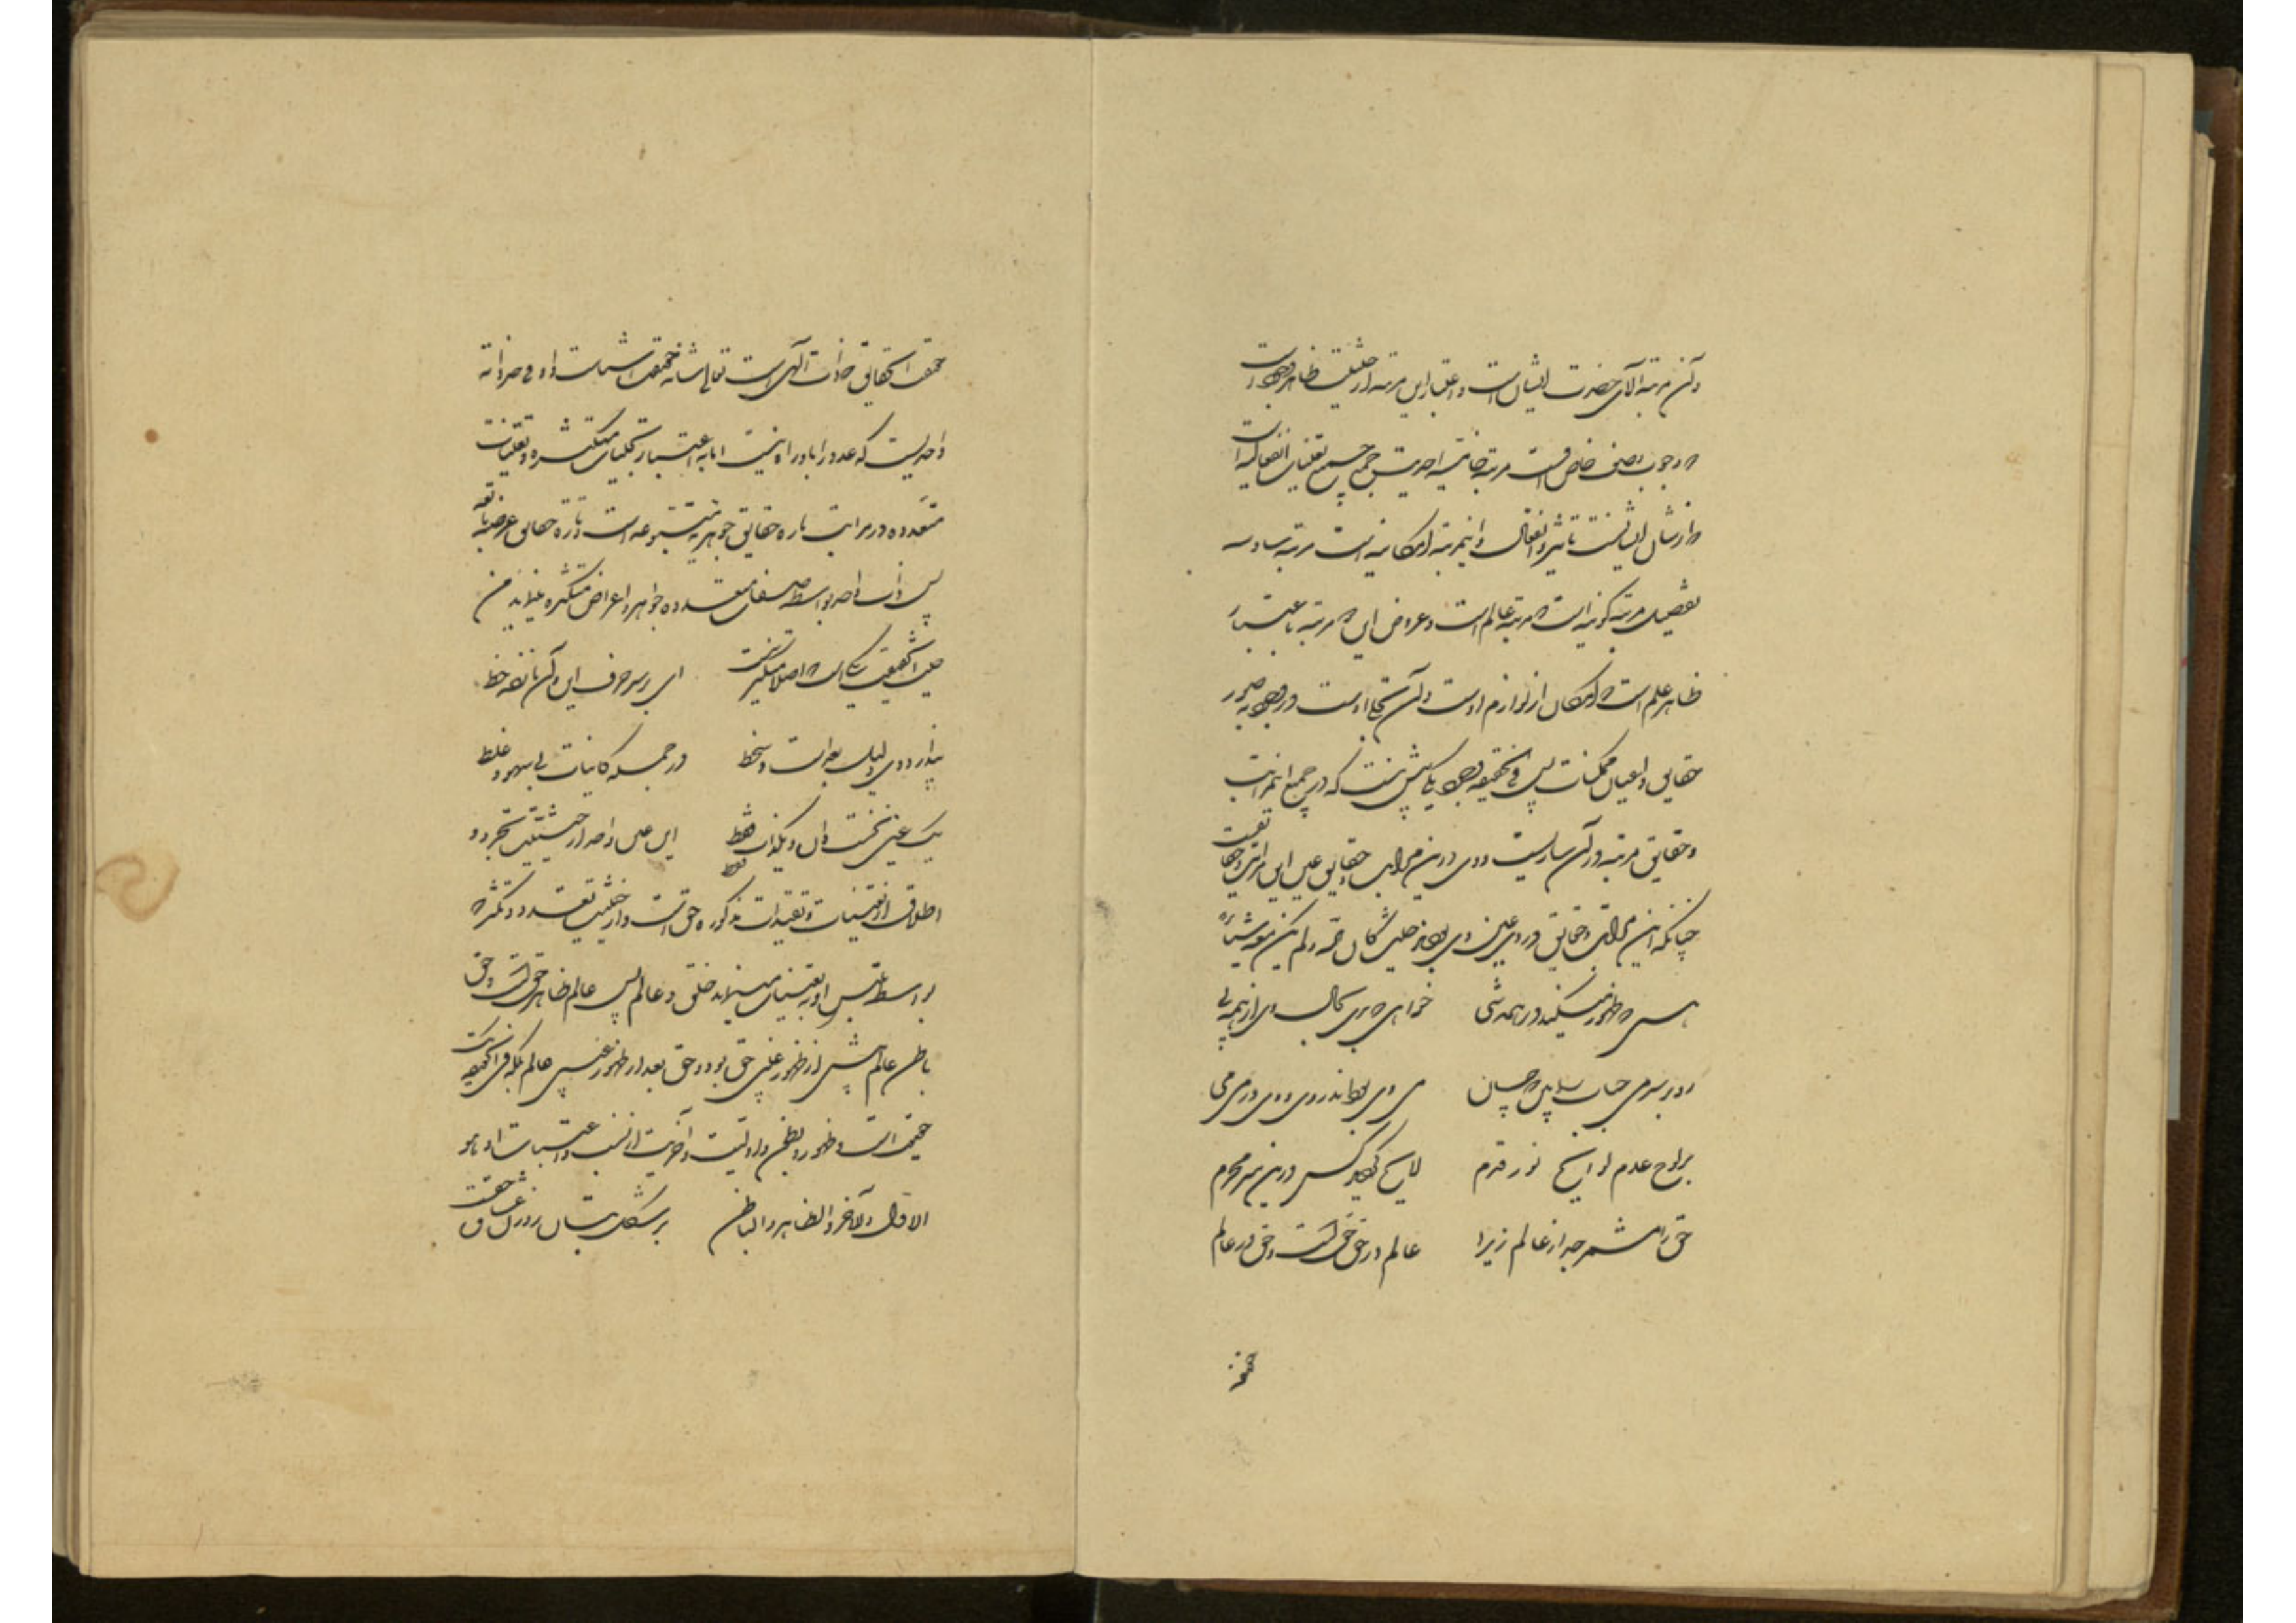 وآن مرتبه الاهی حضرت ایشان است و اعتبار این مرتبه از حیثیت ظاهر وجود است
که وجوب وصف خاص اوست مرتبه خامسه احدیت جمیع جمیع تعینات انفعالیه است
که از شان ایشانست تاثیر و انفعال و این مرتبه امکانیه است مرتبه سادسه
تفصیل مرتبه کونیه است که مرتبه عالم است و عروض این مرتبه باعتبار
ظاهر علم است که امکان از لوازم اوست و آن تجلی اوست در وجود بصور
حقایق و اعیان ممکنات پس فی الحقیقه وجود یکی بیش نیست که در جمیع این مراتب
و حقایق مرتبه در آن ساریست و وی درین مراتب و حقایق عین این مراتب و حقایقست
چنانکه این مراتب و حقایق در وی عین وی بودند حیث کان الله ولم یکن معه شیئا
هستی که ظهور میکند در همه شی خواهی که بری بحال وی از همه پی
رو بر سر می حباب را بین که چسان می وی بود اندر وی و وی در می می
بر لوح عدم لوایح نور قدم لایح گردید و کس درین سر محرم
حق را مشمر جدا ز عالم زیرا عالم در حق حقست و حق در عالم
حقیقه الحقایق که ذات الهی است تعالی شانه حقیقت اشیاست و او فی حد ذاته
واحدیست که عدد را بدو راه نیست اما به اعتبار تجلیات متکثره و تعینات
متعدده در مراتب تاره حقایق جوهریه متبوعه است و تاره حقایق عرضیه تابعه
پس ذات واحد بواسطه صفات متعدده جواهر و اعراض متکثره مینماید من
حیث الحقیقت یکی است که اصلا متکثر نیست ای بر سر حرف این و آن نانهاده خط
پندار دوی دلیل بعد است و سخط در جمله کاینات بی سهو و غلط
یک عین نخست دان و یکذات فقط این عین واحد از حیثیت تجرد و
اطلاق از تعینات و تقیدات مذکوره حق است و از حیثیت تعدد و تکثر که
بواسطه تلبس او به تعینات مینماید خلق و عالم پس عالم ظاهر حق است و حق
باطن عالم عالم پیش از ظهور عین حق بود و حق بعد از ظهور عین عالم بلکه فی الحقیقه یک
حقیقت است و ظهور و بطون و اولیت و آخریت از نسب و اعتبارات او هو
الاول والآخر والظاهر والباطن بر شکل بتان رهزن عشاق حقست